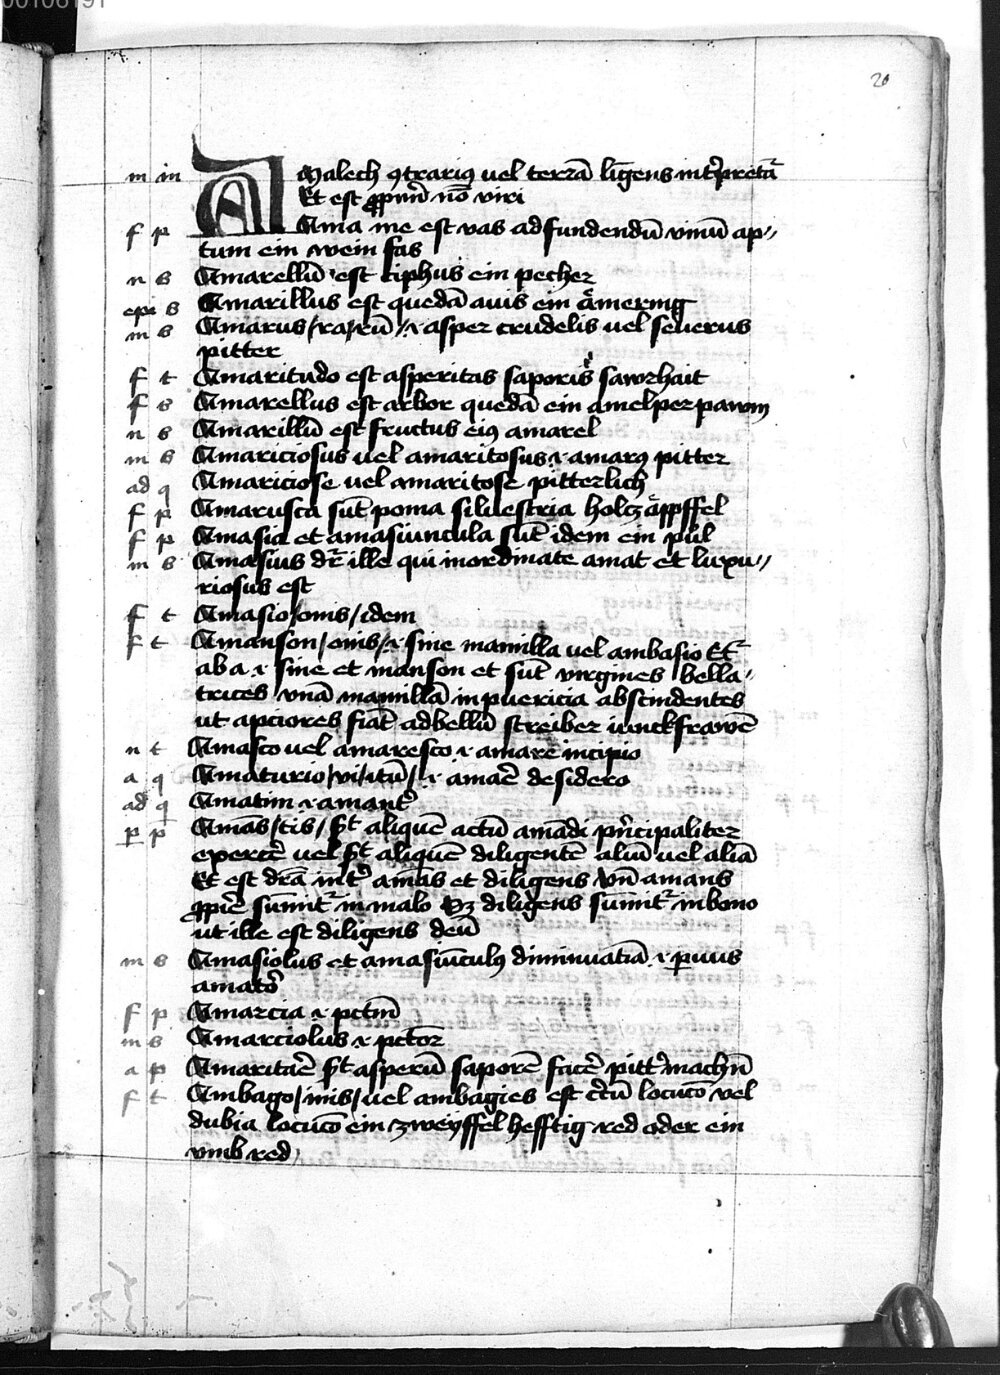 00106191
20
m in Amalech ꝯtrariꝯ uel terrā līgens int̉pretat̃
Et est ꝓpriū nō viri
f p Ama me est vas ad fundendū vinū ap⸗
tum ein wein fas
n s Amarellū est ciphus ein pecher
epi s Amarillus est quedā auis ein ämering
m s Amarus / ra / rū / .i. asper crudelis uel seuerus
pitter
f t Amaritudo est asperitas saporis sawrhait
f s Amarellus est arbor quedā ein amelper pawm
n s Amarillū est fructus eiꝯ amarel
m s Amariciosus uel amaritosus .i. amarꝯ pitter
ad q Amariciose uel amaritose pitterlich
f p Amarusca sūt poma siluestria holcz äppffel
f p Amasia et amasiuncula sūt idem ein pül
m s Amasius dr̃ ille qui inordinate amat et luxu⸗
riosus est
f t Amasio / onis / idem
f t Amanson / onis / .i. sine mamilla uel ambasio Et̃
ab a .i. sine et manson et sūt virgines bella⸗
trices vnā mamillā in puericia abscindentes
ut apciores fiāt ad bellū streiber iunckfrawē
n t Amasco uel amaresco .i. amare incipio
a q Amaturio / vi / itū / .i. amar̄e desidero
ad q Amatim .i. amant̉
p p Amās / tis / st̄ aliquē actū amādi pn̄cipaliter
exerce͛ uel st̄ aliquē diligentē aliū uel aliā
Et est dr̄a int̉ amās et diligens Vn̄ amans
ꝓpie̛ sumit̃ in malo Sꝫ diligens sumit̃ in bono
ut ille est diligens deū
m s Amasiolus et amasiūculꝯ diminuatiā .i. ꝑuus
amato͛
f p Amarcia .i. pctm̄
m s Amarciolus .i. pctor
a p Amaritar̄e st̄ asperū saporē face͛ pitt̉ machn̄
f t Ambago / inis / uel ambagies est ct̉ū locuco̅ vel
dubia locuco̅ ein zweÿffel hefftig red oder ein
vmb red